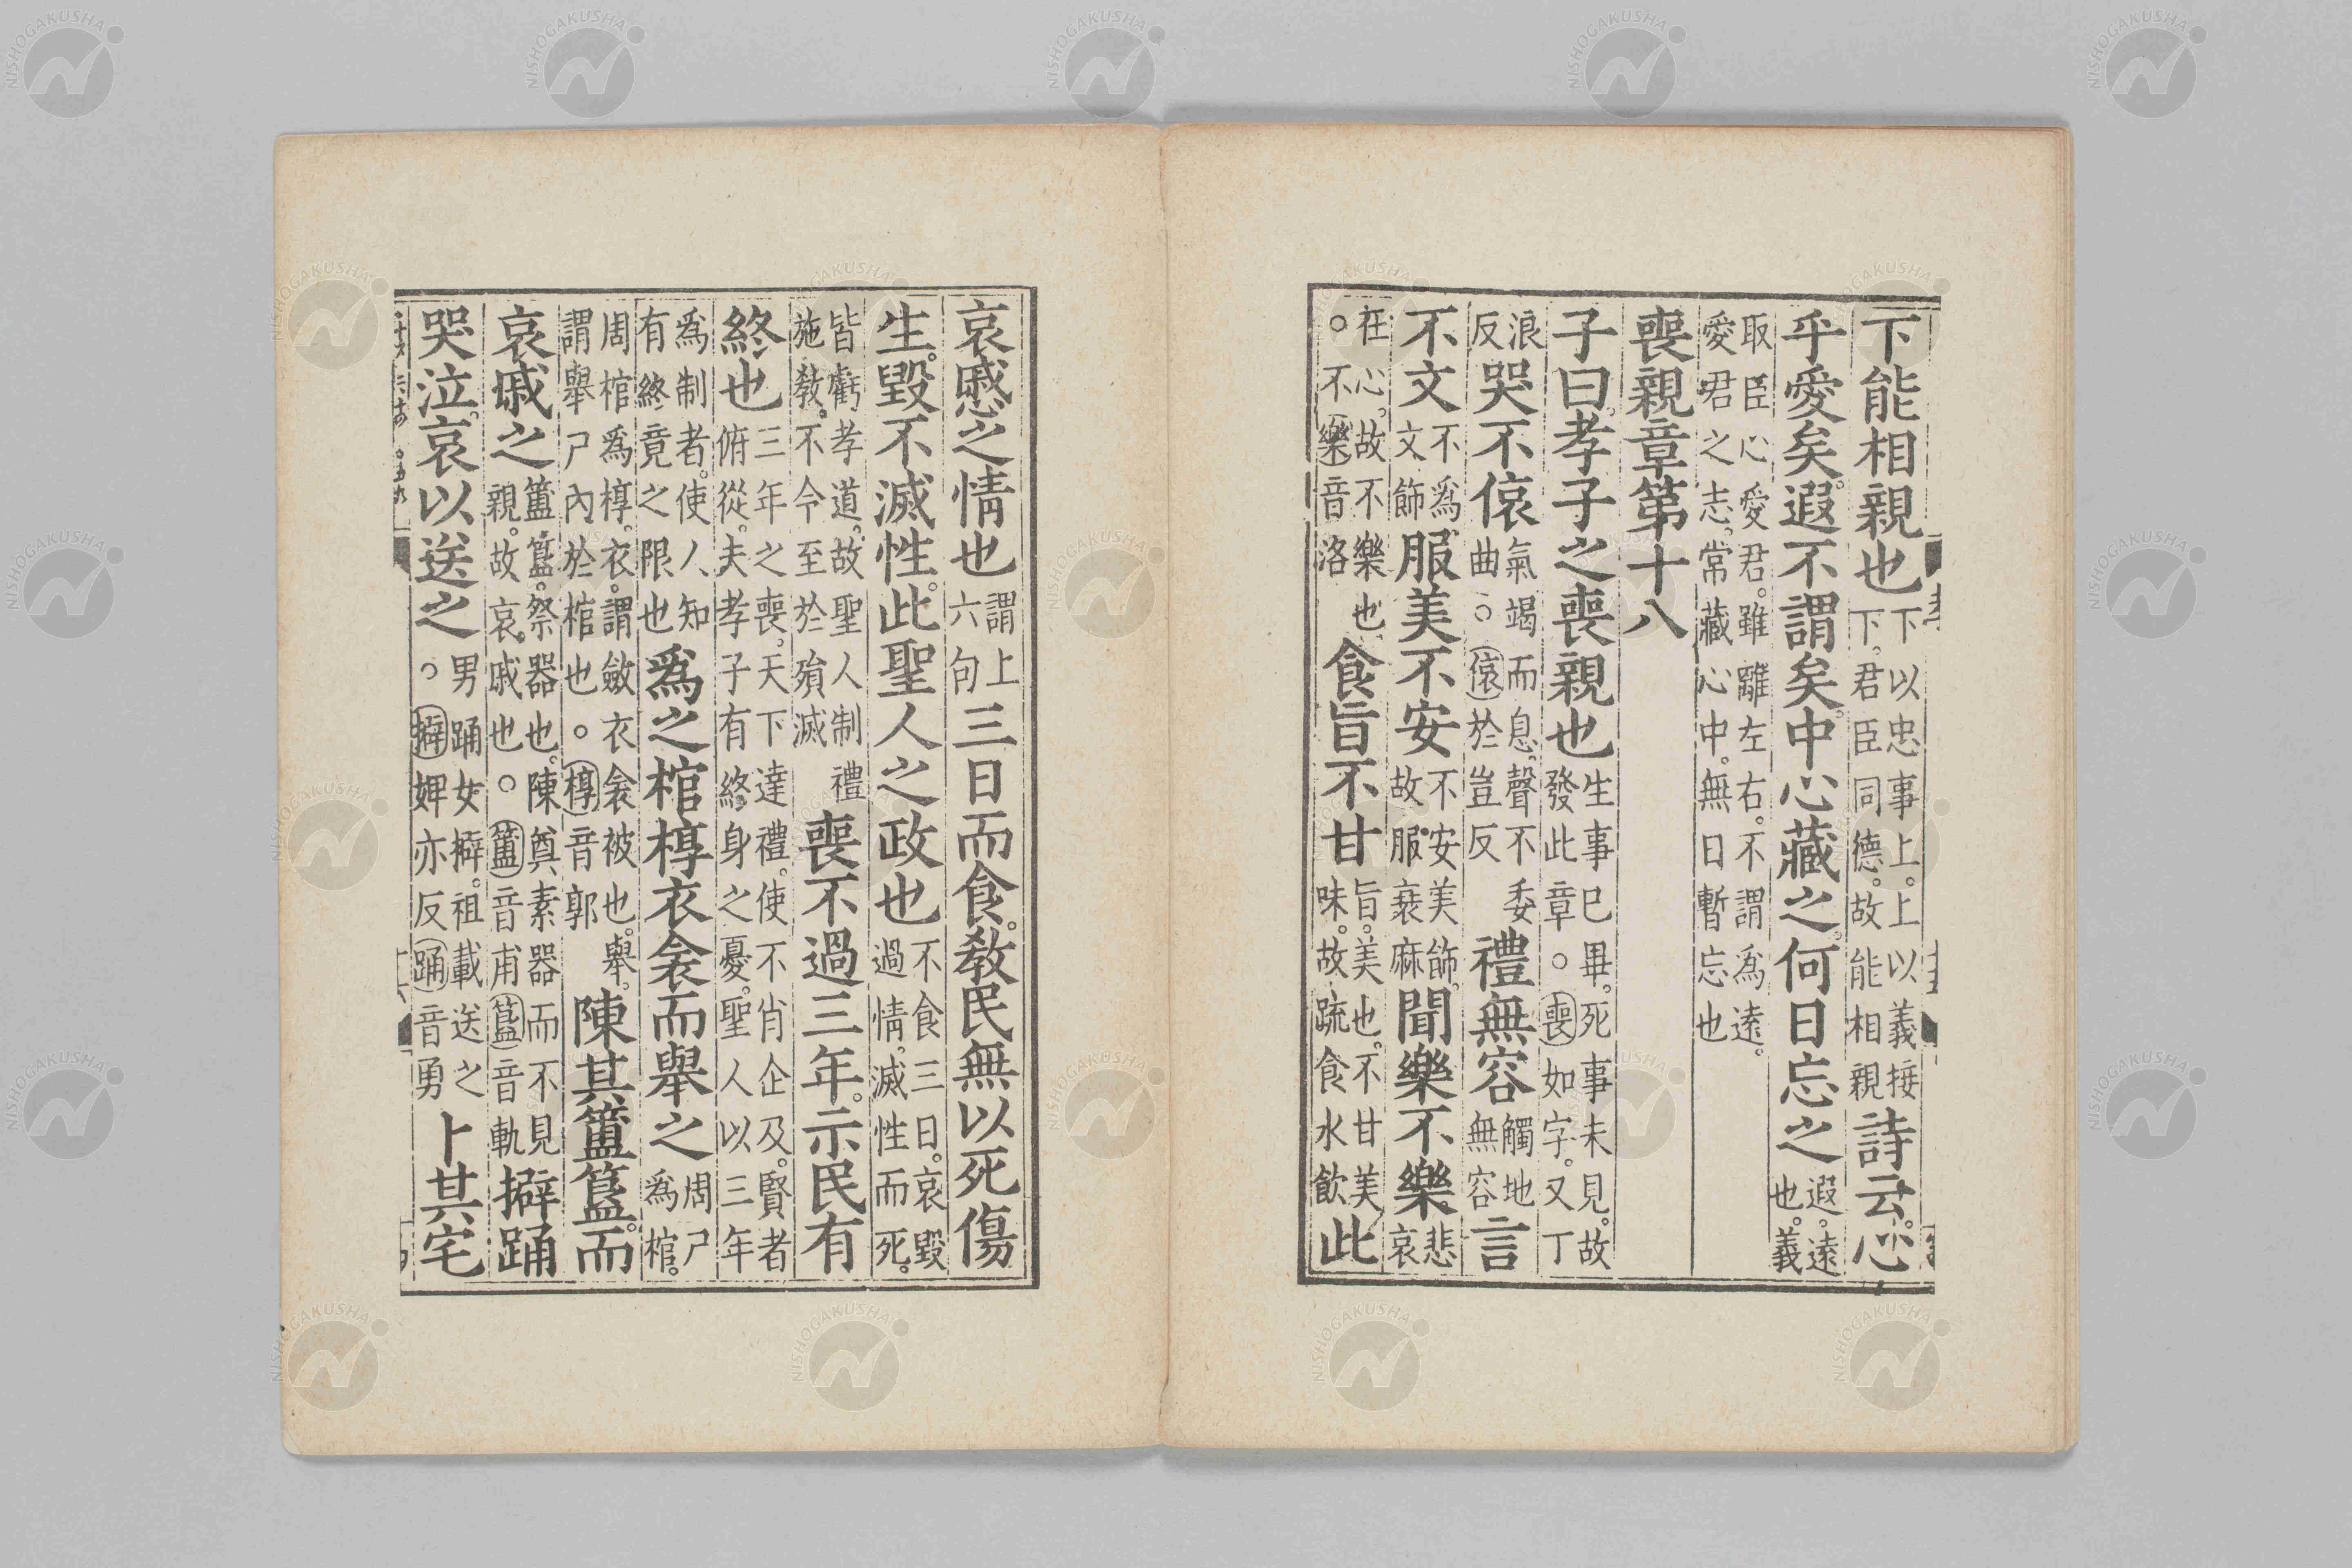 下能相親也下以忠事上。上以義接下。君臣同德。故能相親詩云。心
乎愛矣。遐不謂矣。中心藏之。何日忘之遐。遠也。義
取臣心愛君。雖離左右。不謂為遠。愛君之志。常藏心中。無日暫忘也
喪親章第十八
子曰。孝子之喪親也生事已畢。死事未見。故發此章。○喪如字。又丁
浪反哭不偯氣竭而息。聲不委曲。○偯於豈反禮無容觸地無容言
不文不爲文飾服美不安不安美飾。故服衰麻聞樂不樂悲哀
在心。故不樂也○不樂音洛食旨不甘旨。美也。不甘美味。故疏食水飲此
哀慼之情也謂上六句三日而食。教民無以死傷
生。毀不滅性。此聖人之政也不食三日。哀毀過情。滅性而死。
皆虧孝道。故聖人制禮施教。不令至於殞滅喪不過三年。示民有
終也三年之喪。天下達禮。使不肖企及。賢者俯從。夫孝子有終身之憂。聖人以三年
爲制者。使人知有終竟之限也爲之棺椁衣衾而舉之周尸爲棺。
周棺爲椁。衣。謂斂衣衾被也。舉。謂舉尸內於棺也。○椁音郭陳其簠簋。而
哀慼之簠簋。祭器也。陳奠素器而不見親。故哀慼也。○簠音甫簋音軌擗踊
哭泣。哀以送之男踊女擗。祖載送之。○擗婢亦反踊音勇卜其宅
NISHOGAKUSHA